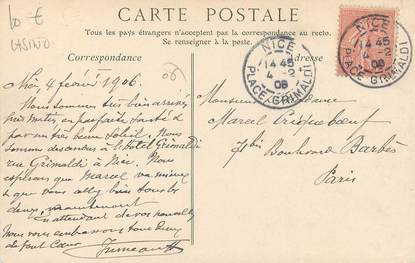 10 €
CASINO
CARTE POSTALE
Tous les pays étrangers n'acceptent pas la correspondance au recto.
Se renseigner à la poste.
Correspondance
Adresse
NICE
14 45
4 - 2
06
PLACE GRIMALDI
NICE
14 45
4 - 2
06
PLACE GRIMALDI
Nice, 4 février 1906
(06)
Nous sommes très bien arrivés
très en parfaite santé &
par un très beau soleil. Nous
sommes descendus à l'Hôtel Grimaldi
rue Grimaldi à Nice. Nous
espérons que Marcel va mieux
& que vous allez bien tous les
deux, maintenant
En attendant de vos nouvelles
Nous vous embrassons tous deux
de tout Cœur
Monsieur
Marcel Cricquebœuf
Boulevard Barbès
Paris